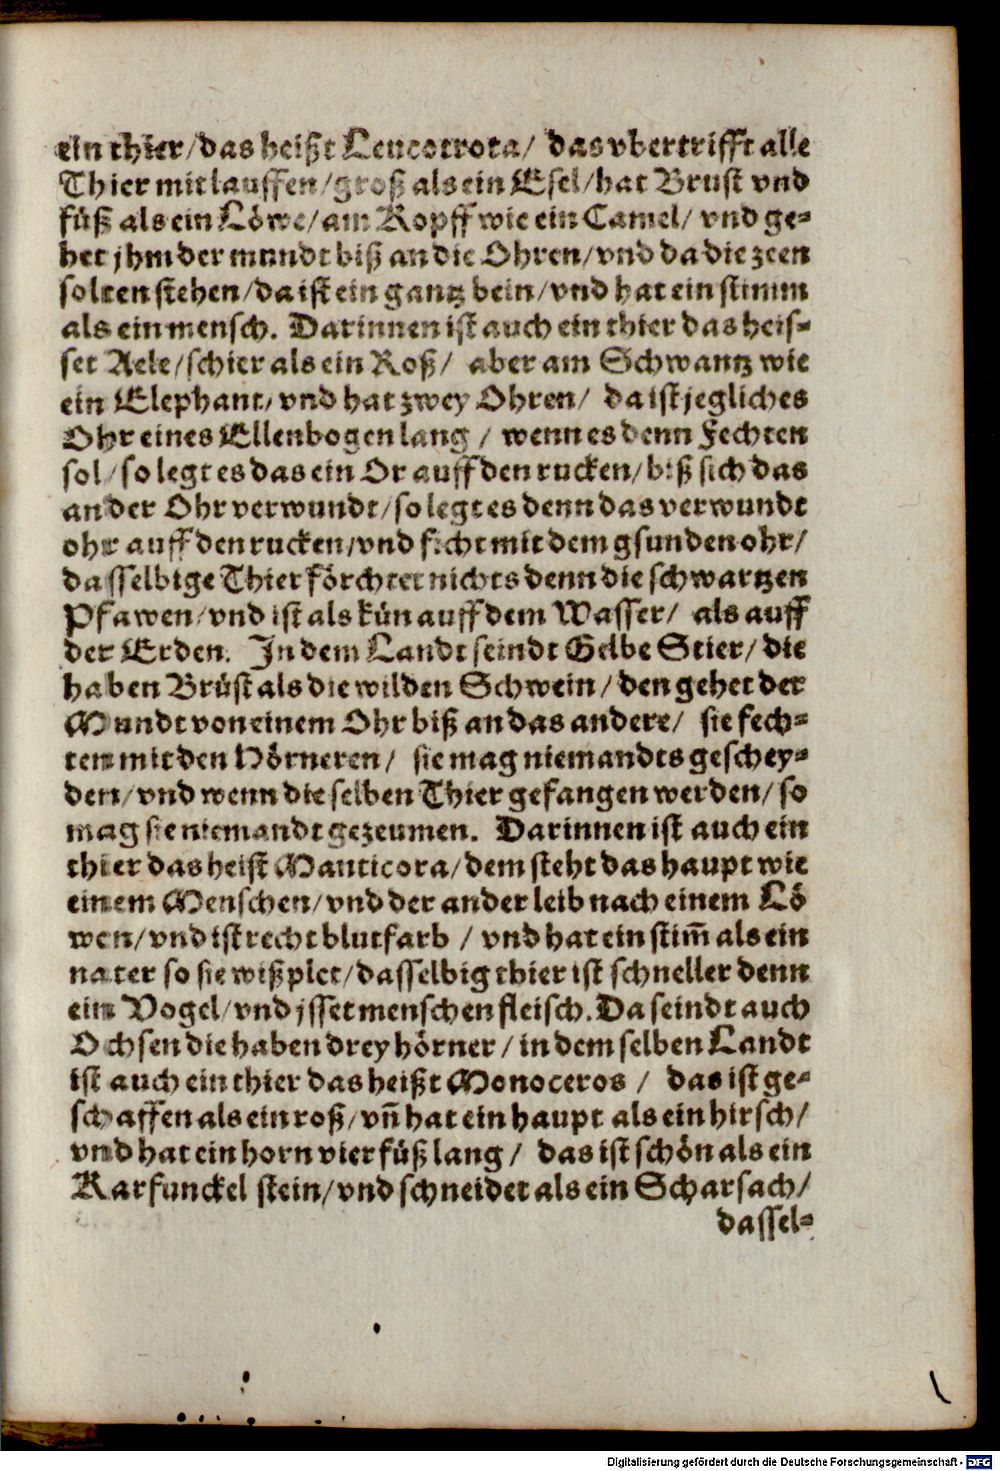 ein thier/das heißt Leucotrota/ das vbertrifft alle
Thier mit lauffen/groß als ein Esel/hat Brust vnd
füß als ein Löwe/am Kopff wie ein Camel/ vnd ge-
het jhm der mundt biß an die Ohren/vnd da die zeen
solten stehen/da ist ein gantz bein/vnd hat ein stimm
als ein mensch. Darinnen ist auch ein thier das heis-
set Aele/schier als ein Roß/ aber am Schwantz wie
ein Elephant/vnd hat zwey Ohren/ da ist jegliches
Ohr eines Ellenbogen lang / wenn es denn Fechten
sol/so legt es das ein Or auff den rucken/biß sich das
ander Ohr verwundt/so legt es denn das verwundt
ohr auff den rucken/vnd ficht mit dem gsunden ohr/
dasselbige Thier förchtet nichts denn die schwartzen
Pfawen/vnd ist als kün auff dem Wasser/ als auff
der Erden. In dem Landt seindt Gelbe Stier/die
haben Brüst als die wilden Schwein/den gehet der
Mundt von einem Ohr biß an das andere/ sie fech-
ten mit den Hörneren/ sie mag niemandts geschey-
den/vnd wenn die selben Thier gefangen werden/so
mag sie niemandt gezeumen. Darinnen ist auch ein
thier das heist Manticora/dem steht das haupt wie
einem Menschen/vnd der ander leib nach einem Lö
wen/vnd ist recht blutfarb / vnd hat ein stim̃ als ein
nater so sie wißplet/dasselbig thier ist schneller denn
ein Vogel/vnd jsset menschen fleisch. Da seindt auch
Ochsen die haben drey hörner/in dem selben Landt
ist auch ein thier das heißt Monoceros / das ist ge-
schaffen als ein roß/vñ hat ein haupt als ein hirsch/
vnd hat ein horn vier füß lang/ das ist schön als ein
Karfunckel stein/vnd schneidet als ein Scharsach/
dassel-
Digitalisierung gefördert durch die Deutsche Forschungsgemeinschaft - DFG